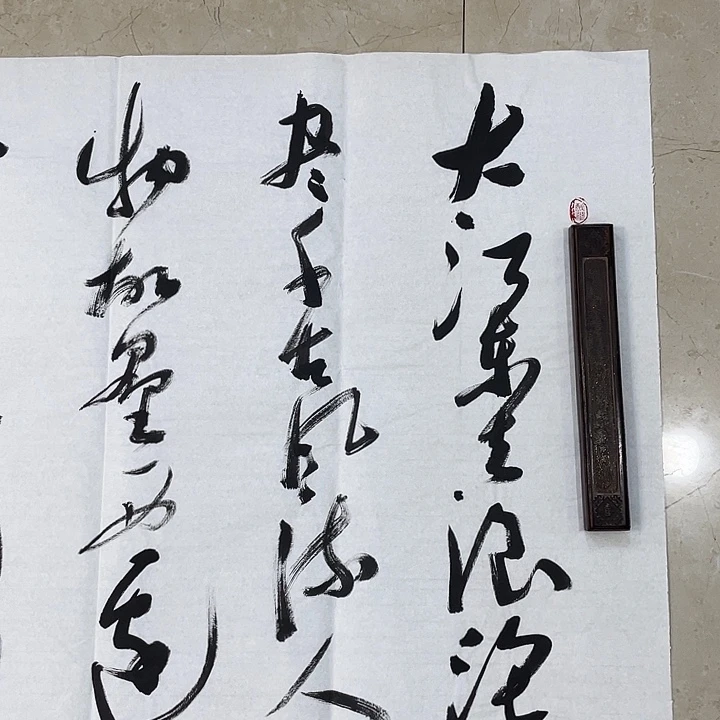 大江东去浪淘
尽千古风流人
物故垒西边